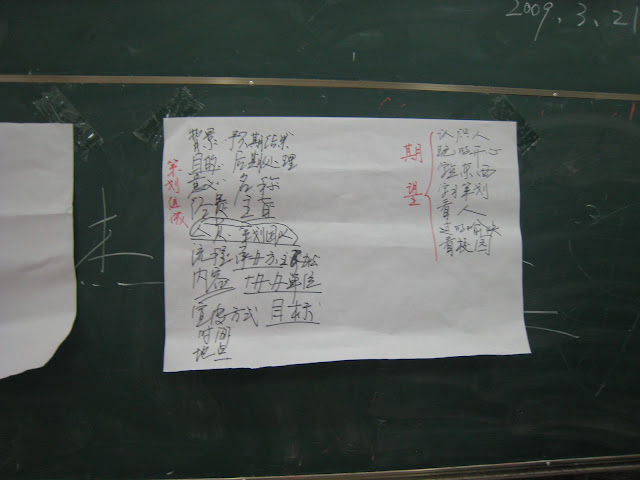 2009.3.21
策划组成
背景 预期结果
目的 后期处理
意义 名称
经费 主旨
人员 策划团队
流程 承办方
内容 协办单位
宣传方式 目标
时间
地点
期望
认识人
玩的开心
学东西
学策划
看人
过的愉快
看校园